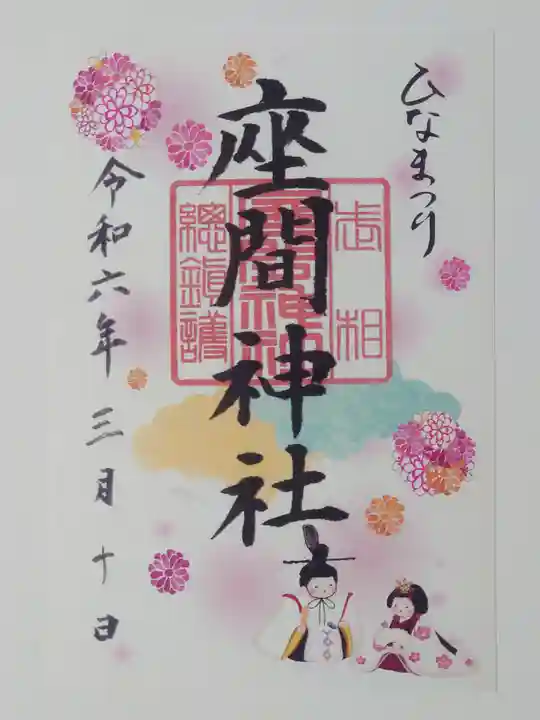 ひなまつり
座間神社
相武
總鎮護
令和六年三月十日